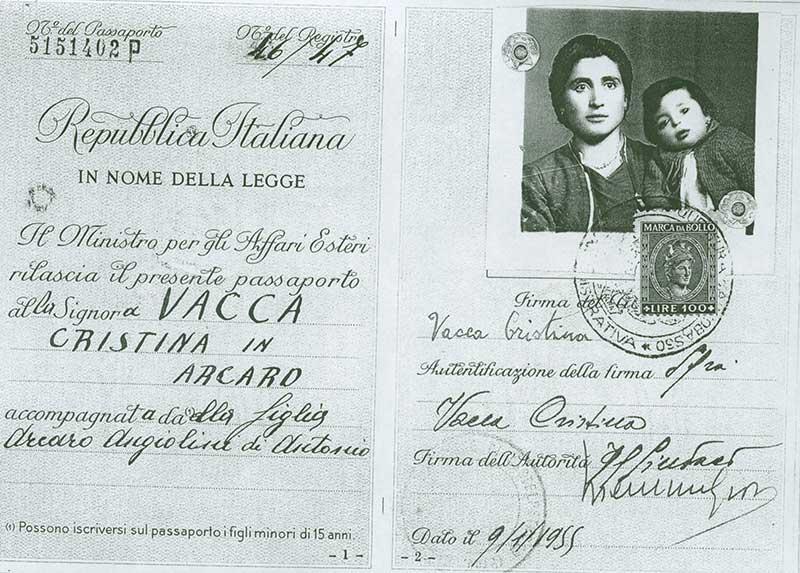 N.º del Passaporto
5151402 P
N.º del Registro
46/47
Repubblica Italiana
IN NOME DELLA LEGGE
Il Ministro per gli Affari Esteri
rilascia il presente passaporto
alla Signora VACCA
CRISTINA IN
ARCARO
accompagnata da lla figlia
Arcaro Angiolina di Antonio
(1) Possono iscriversi sul passaporto i figli minori di 15 anni.
- 1 -
MARCA DA BOLLO
LIRE 100
Firma del
Vacca Cristina
Autentificazione della firma
Vacca Cristina
Firma dell'Autorità Il Sindaco
Dato il 9/11/1955
- 2 -